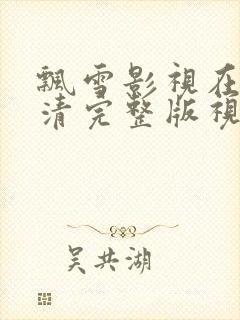 飄雪影視在
清完整版視
吴共湖